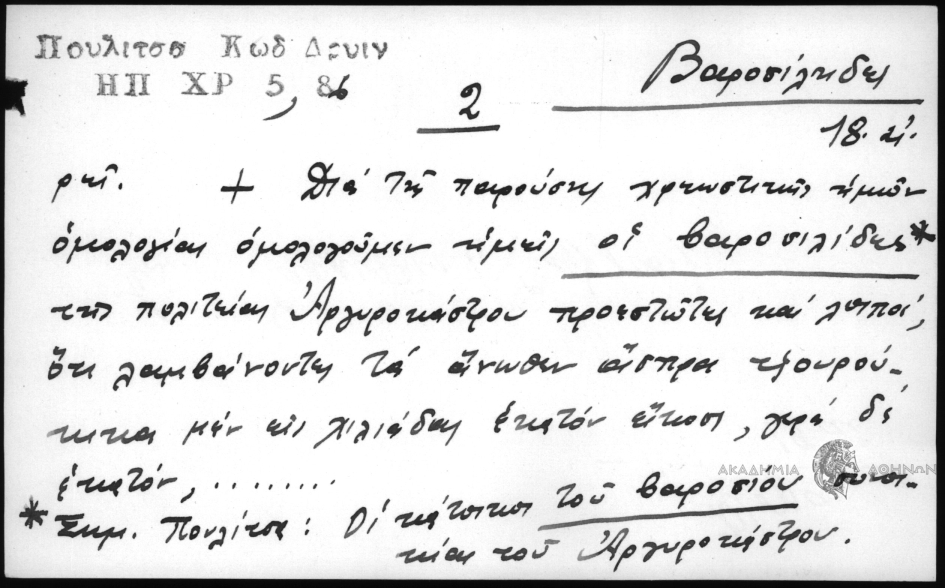 Πουλιτσα Κωδ Δρυιν
ΗΠ ΧΡ 5, 86
Βαροσίληδες
2
18. αἰ.
ρκῆ. + Διά τῆς παρούσης χρεωστικῆς ἡμῶν
ὁμολογίας ὁμολογοῦμεν ἡμεῖς οἱ βαροσιλίδες*
τῆς πολιτείας Ἀργυροκάστρου προεστῶτες καί λοιποί,
ὅτι λαμβάνοντες τά ἄνωθεν ἄσπρα τζουρού-
κικα μέν εἰς χιλιάδας ἑκατόν εἴκοσι, γερά δέ
ἑκατόν, ........
* Σημ. Πουλίτσα: Οἱ κάτοικοι τοῦ βαροσιοῦ συνοι-
κίας τοῦ Ἀργυροκάστρου.
ΑΚΑΔΗΜΙΑ ΑΘΗΝΩΝ